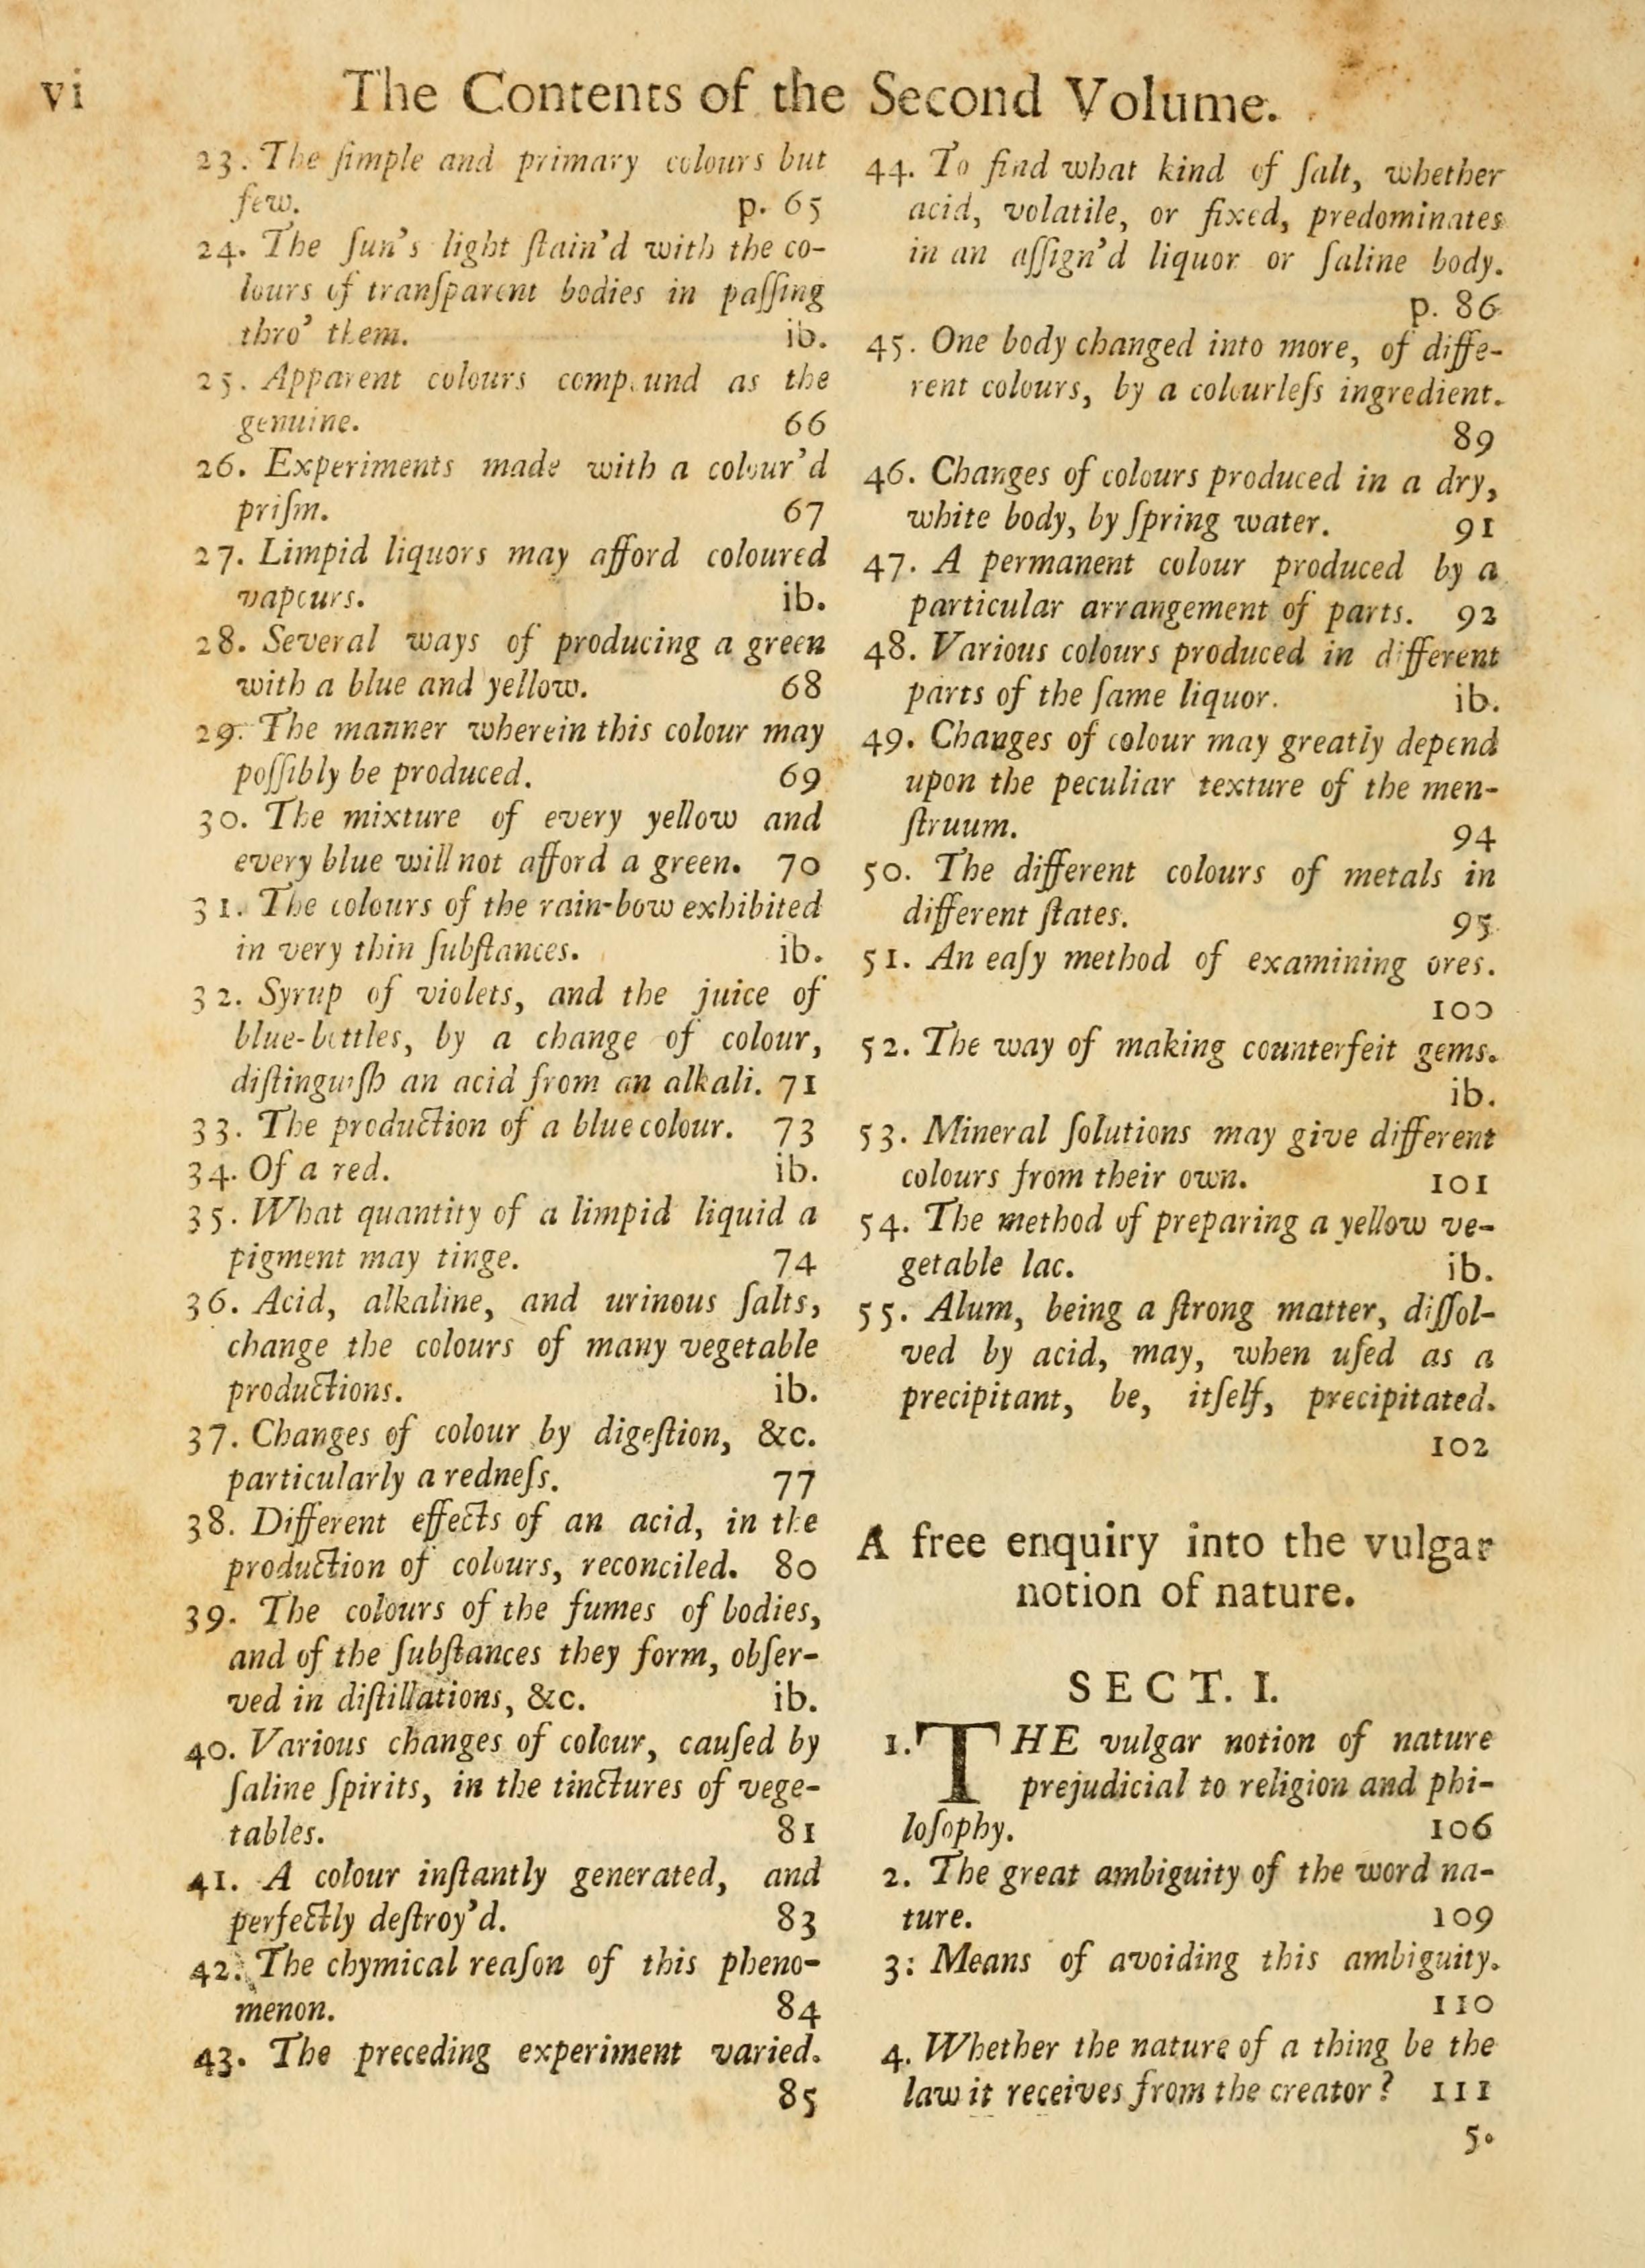 vi
The Contents of the Second Volume.
23. The ſimple and primary colours but
few. p. 65
24. The ſun's light ſtain'd with the co-
lours of tranſparent bodies in paſſing
thro' them. ib.
25. Apparent colours compound as the
genuine. 66
26. Experiments made with a colour'd
priſm. 67
27. Limpid liquors may afford coloured
vapours. ib.
28. Several ways of producing a green
with a blue and yellow. 68
29. The manner wherein this colour may
poſſibly be produced. 69
30. The mixture of every yellow and
every blue will not afford a green. 70
31. The colours of the rain-bow exhibited
in very thin ſubſtances. ib.
32. Syrup of violets, and the juice of
blue-bottles, by a change of colour,
diſtinguiſh an acid from an alkali. 71
33. The production of a blue colour. 73
34. Of a red. ib.
35. What quantity of a limpid liquid a
pigment may tinge. 74
36. Acid, alkaline, and urinous ſalts,
change the colours of many vegetable
productions. ib.
37. Changes of colour by digeſtion, &c.
particularly a redneſs. 77
38. Different effects of an acid, in the
production of colours, reconciled. 80
39. The colours of the fumes of bodies,
and of the ſubſtances they form, obſer-
ved in diſtillations, &c. ib.
40. Various changes of colour, cauſed by
ſaline ſpirits, in the tinctures of vege-
tables. 81
41. A colour inſtantly generated, and
perfectly deſtroy'd. 83
42. The chymical reaſon of this pheno-
menon. 84
43. The preceding experiment varied.
85
44. To find what kind of ſalt, whether
acid, volatile, or fixed, predominates
in an aſſign'd liquor or ſaline body.
p. 86
45. One body changed into more, of diffe-
rent colours, by a colourleſs ingredient.
89
46. Changes of colours produced in a dry,
white body, by ſpring water. 91
47. A permanent colour produced by a
particular arrangement of parts. 92
48. Various colours produced in different
parts of the ſame liquor. ib.
49. Changes of colour may greatly depend
upon the peculiar texture of the men-
ſtruum. 94
50. The different colours of metals in
different ſtates. 95
51. An eaſy method of examining ores.
100
52. The way of making counterfeit gems.
ib.
53. Mineral ſolutions may give different
colours from their own. 101
54. The method of preparing a yellow ve-
getable lac. ib.
55. Alum, being a ſtrong matter, diſſol-
ved by acid, may, when uſed as a
precipitant, be, itſelf, precipitated.
102
A free enquiry into the vulgar
notion of nature.
SECT. I.
1. THE vulgar notion of nature
prejudicial to religion and phi-
loſophy. 106
2. The great ambiguity of the word na-
ture. 109
3: Means of avoiding this ambiguity.
110
4. Whether the nature of a thing be the
law it receives from the creator? 111
5.